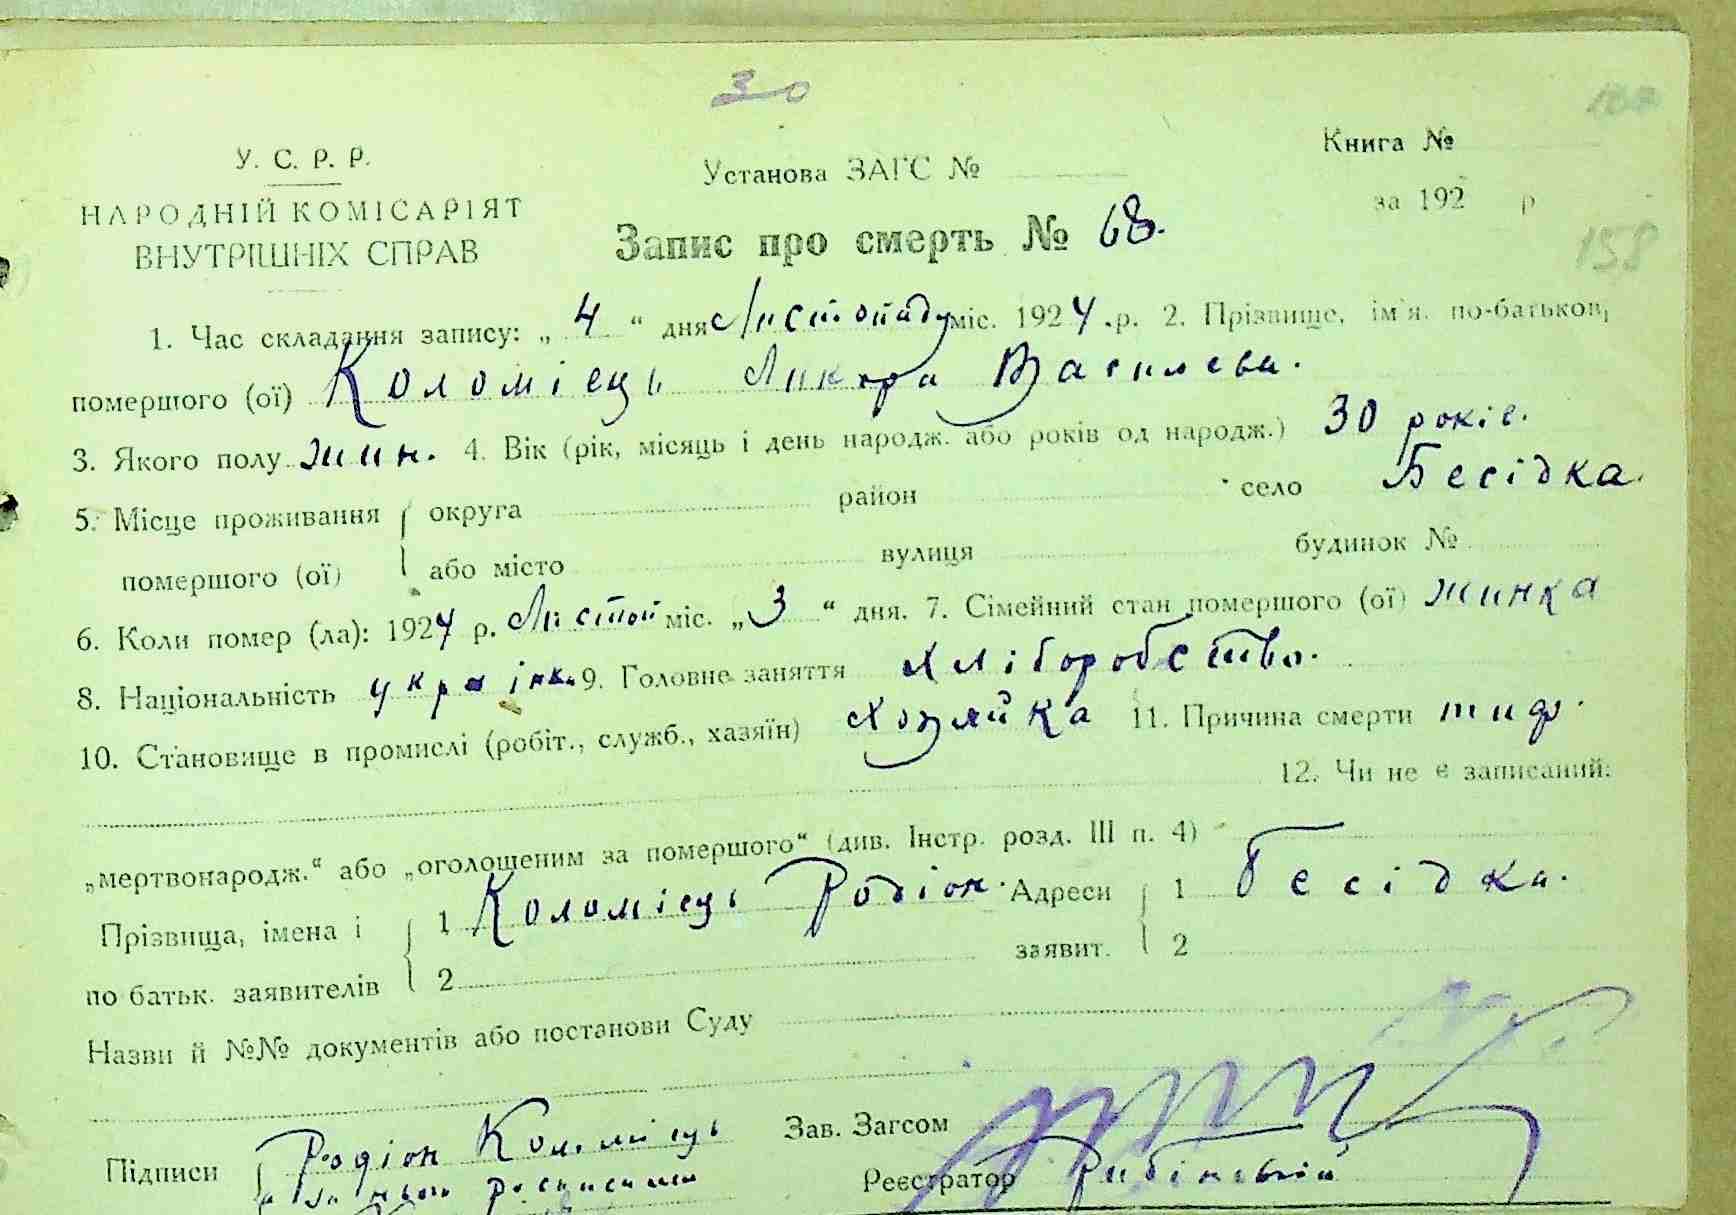 30
У. С. Р. Р.
НАРОДНІЙ КОМІСАРІЯТ
ВНУТРІШНІХ СПРАВ
Установа ЗАГС №
Книга №
за 192 р
158
Запис про смерть № 68.
1. Час складання запису: „ 4 “ дня Листопаду міс. 1924 .р. 2. Прізвище, ім'я. по-батькові
помершого (ої) Коломієць Ликера Василева.
3. Якого полу жин. 4. Вік (рік, місяць і день народж. або років од народж.) 30 років.
5. Місце проживання округа район село Бесідка.
помершого (ої) або місто вулиця будинок №
6. Коли помер (ла): 1924 р. Листоп міс. „ 3 “ дня. 7. Сімейний стан помершого (ої) жинка
8. Національність українк. 9. Головне заняття хліборобство.
10. Становище в промислі (робіт., служб., хазяїн) хозяйка 11. Причина смерти тиф.
12. Чи не є записаний:
„мертвонародж.“ або „оголошеним за помершого“ (див. Інстр. розд. III п. 4)
Прізвища, імена і 1 Коломієць Родіон. Адреси 1 Бесідка.
по батьк. заявителів 2 заявит. 2
Назви й №№ документів або постанови Суду
Зав. Загсом
Підписи Родіон Коломієць
Реєстратор